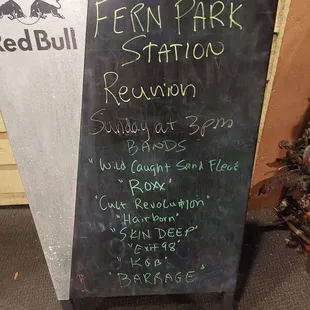 Red Bull
FERN PARK
STATION
Reunion
Sunday at 3pm
BANDS
"Wild Caught Sand Fleas"
"Roxx"
"Cult Revolution"
"Hairborn"
"SKIN DEEP"
"Exit 98"
"KGB"
"BARRAGE"